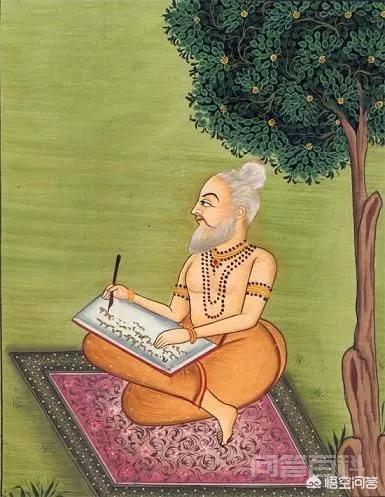 问答百科
悟空问答